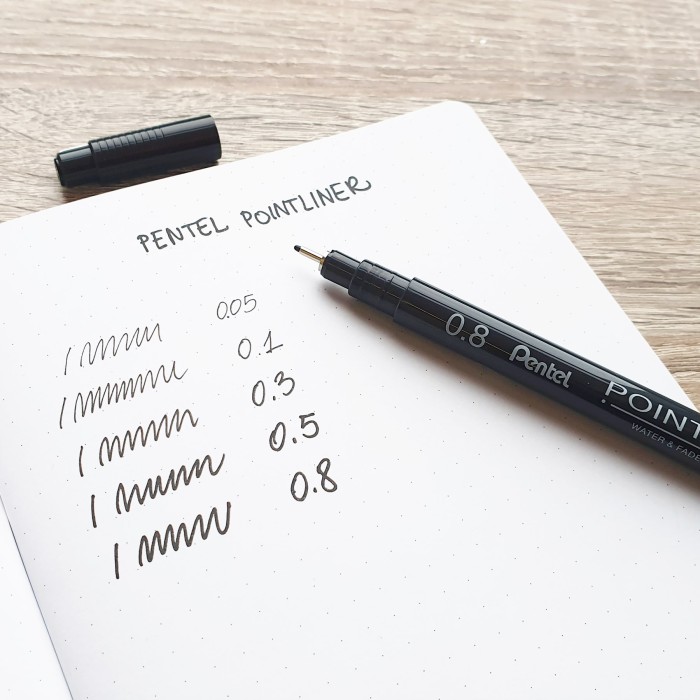 PENTEL POINTLINER
0.05
0.1
0.3
0.5
0.8
0.8 Pentel POINT
WATER & FADE